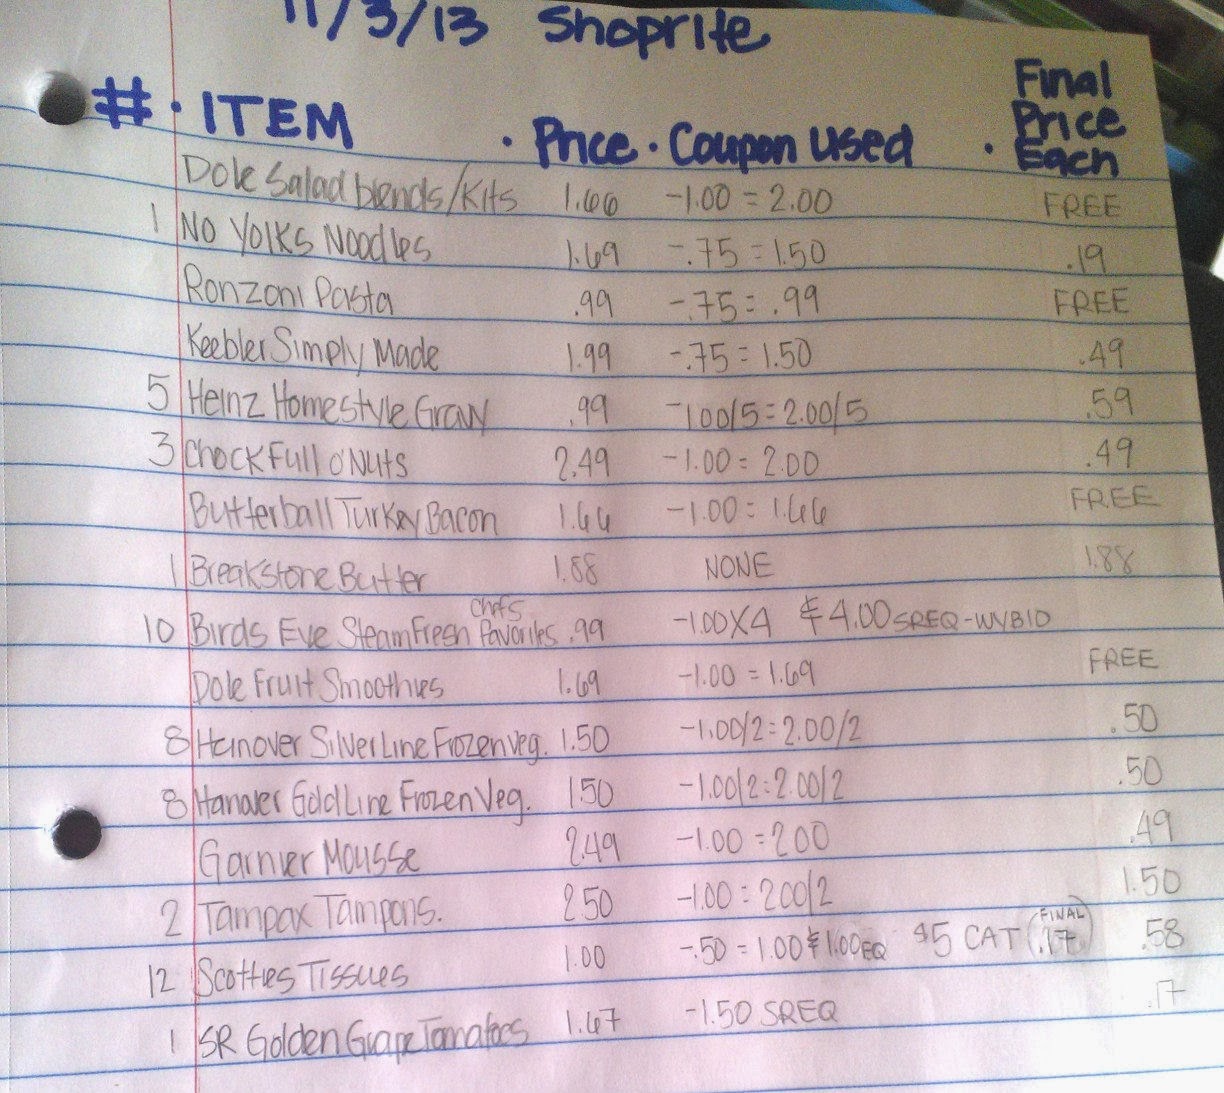 11/3/13 Shoprite
# · ITEM · Price · Coupon Used · Final Price Each
Dole Salad blends/Kits 1.66 -1.00 = 2.00 FREE
1 No Yolks Noodles 1.69 -.75 = 1.50 .19
Ronzoni Pasta .99 -.75 = .99 FREE
Keebler Simply Made 1.99 -.75 = 1.50 .49
5 Heinz Homestyle Gravy .99 -1.00/5 = 2.00/5 .59
3 Chock Full O'Nuts 2.49 -1.00 = 2.00 .49
Butterball Turkey Bacon 1.66 -1.00 = 1.66 FREE
1 Breakstone Butter 1.88 NONE 1.88
10 Birds Eye SteamFresh Chefs Favorites .99 -1.00X4 & 4.00 SREQ-WYB10
Dole Fruit Smoothies 1.69 -1.00 = 1.69 FREE
8 Hanover Silver Line Frozen Veg. 1.50 -1.00/2 = 2.00/2 .50
8 Hanover Gold Line Frozen Veg. 1.50 -1.00/2 = 2.00/2 .50
Garnier Mousse 2.49 -1.00 = 2.00 .49
2 Tampax Tampons. 2.50 -1.00 = 2.00/2 1.50
12 Scotties Tissues 1.00 -.50 = 1.00 & 1.00 EQ $5 CAT (FINAL .17) .58
1 SR Golden Grape Tomatoes 1.67 -1.50 SREQ .17